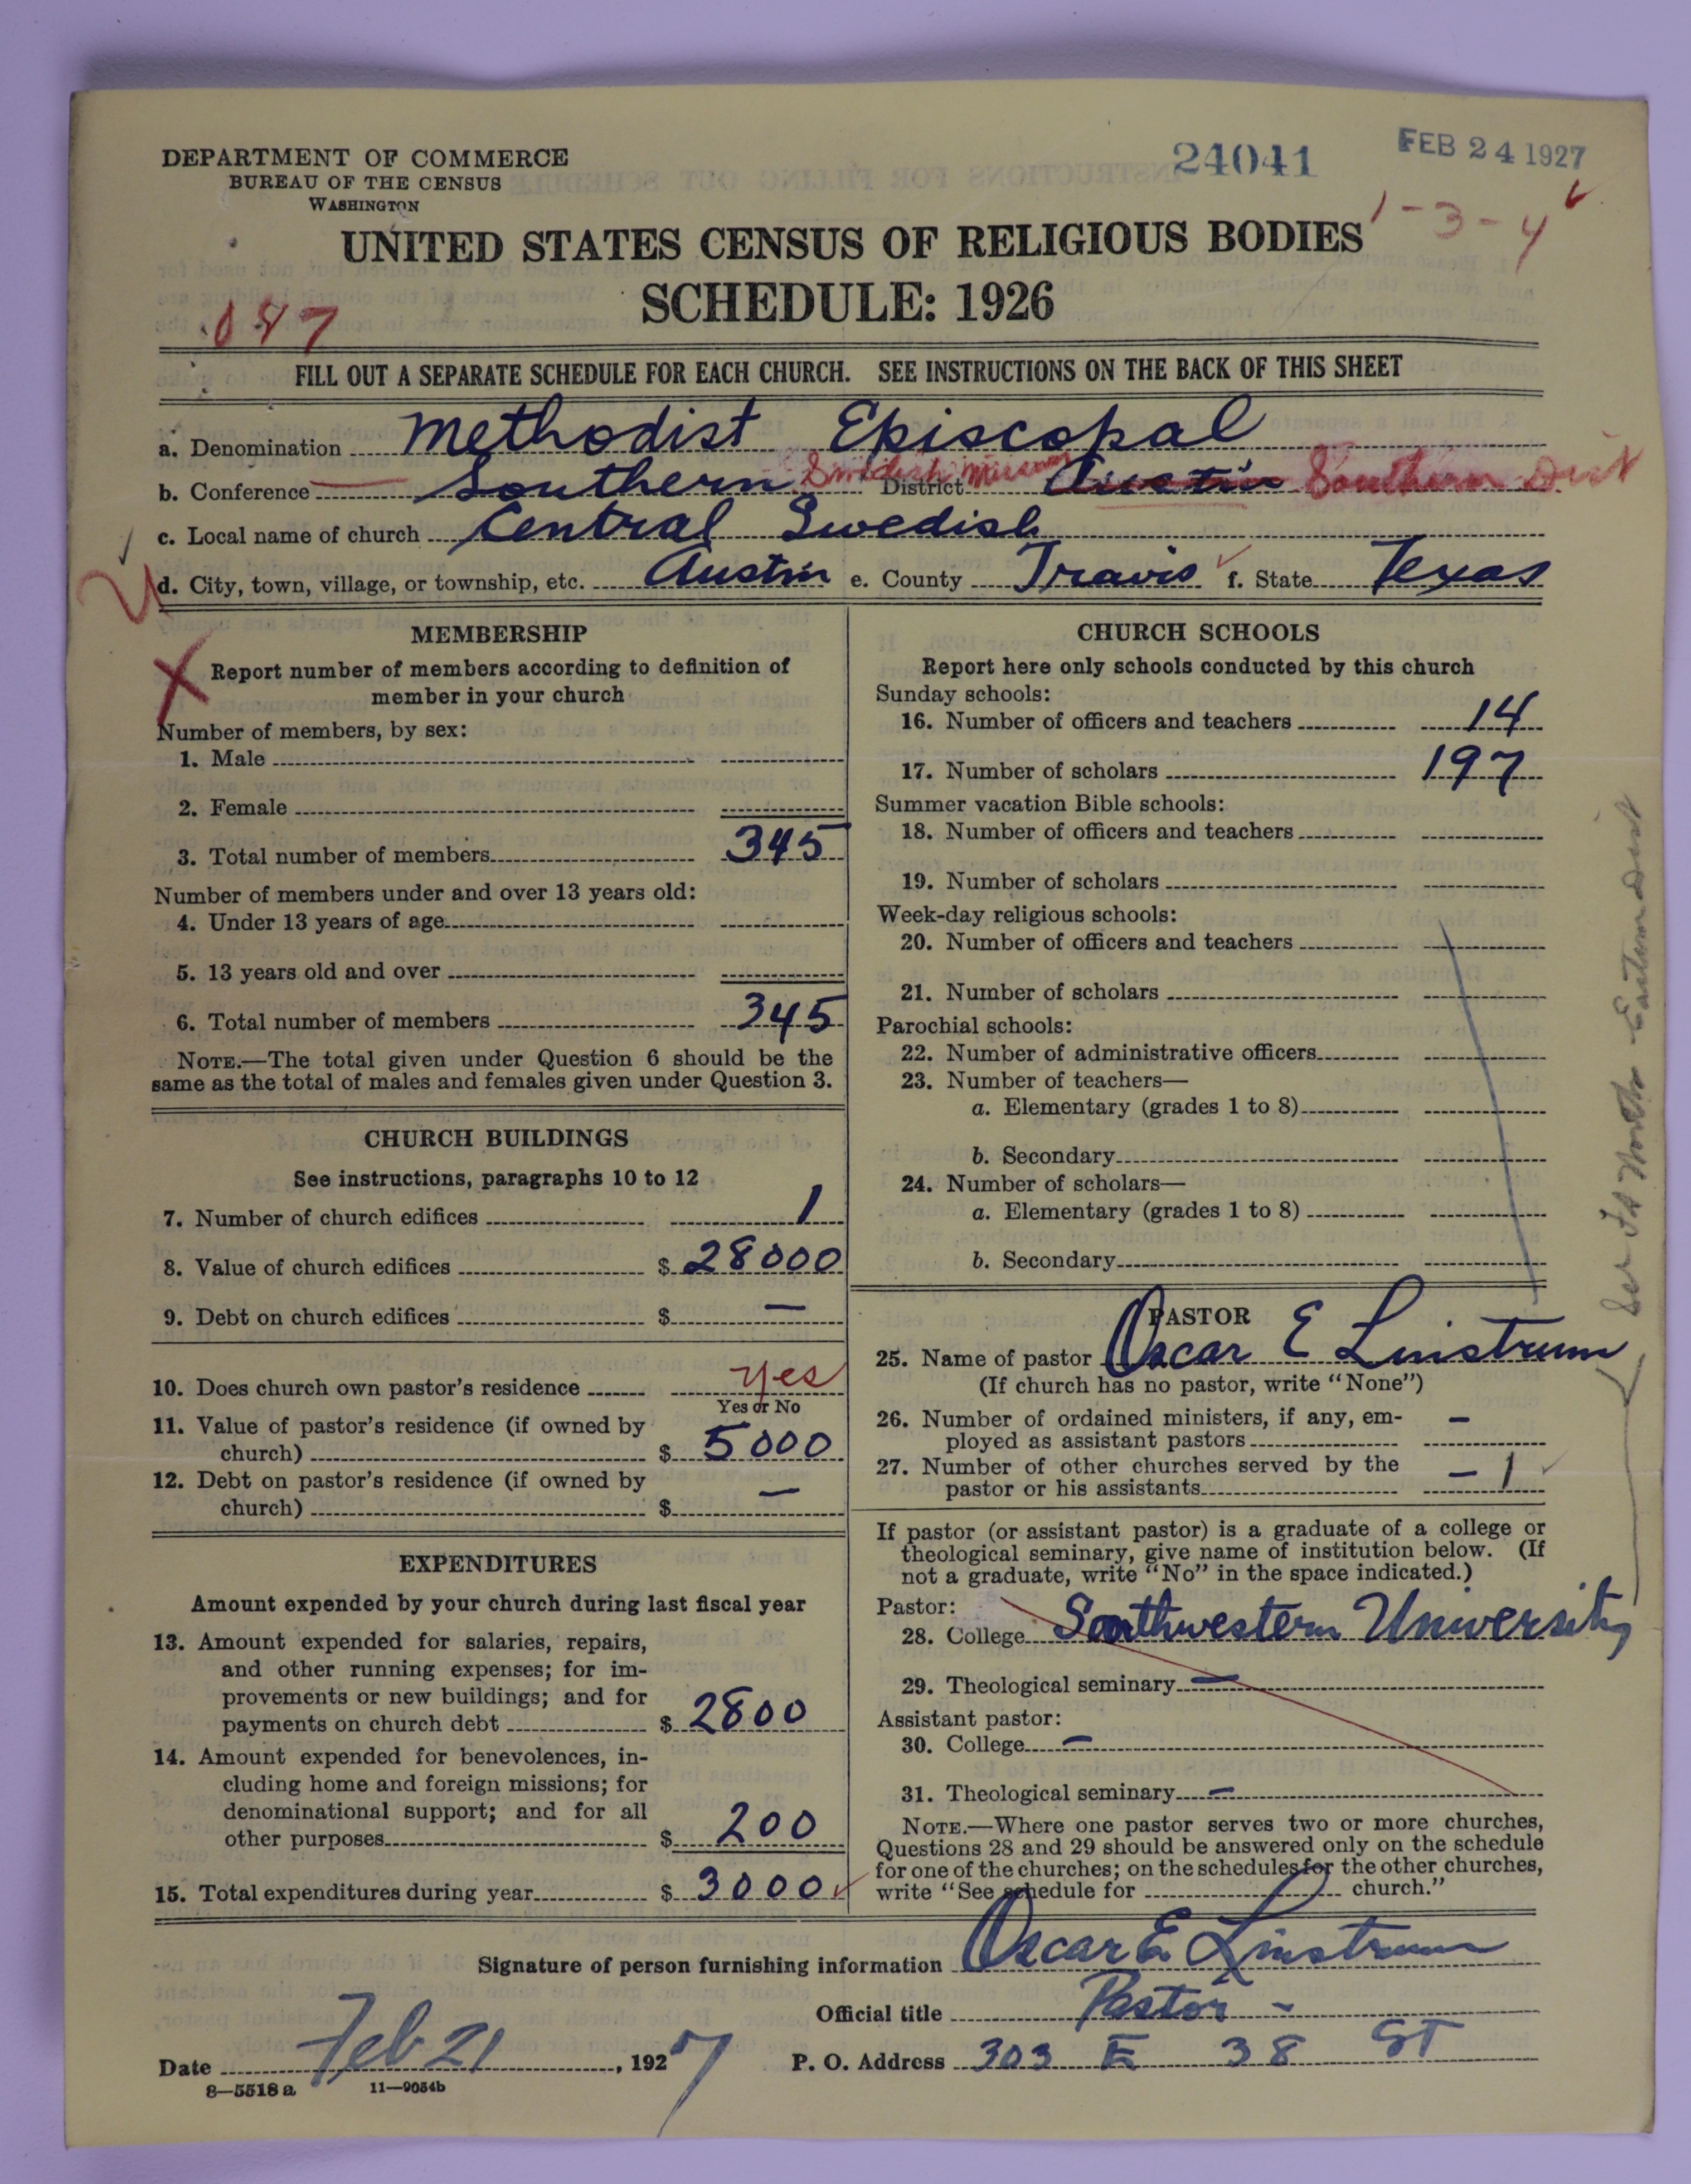 DEPARTMENT OF COMMERCE
BUREAU OF THE CENSUS
WASHINGTON
24041
FEB 24 1927
1-3-4
UNITED STATES CENSUS OF RELIGIOUS BODIES
SCHEDULE: 1926
FILL OUT A SEPARATE SCHEDULE FOR EACH CHURCH. SEE INSTRUCTIONS ON THE BACK OF THIS SHEET
a. Denomination Methodist Episcopal
b. Conference Southern Swedish Mission District Austin Southern Dist
c. Local name of church Central Swedish
d. City, town, village, or township, etc. Austin e. County Travis f. State Texas
MEMBERSHIP
Report number of members according to definition of
member in your church
Number of members, by sex:
1. Male
2. Female
3. Total number of members 345
Number of members under and over 13 years old:
4. Under 13 years of age
5. 13 years old and over
6. Total number of members 345
NOTE.—The total given under Question 6 should be the
same as the total of males and females given under Question 3.
CHURCH BUILDINGS
See instructions, paragraphs 10 to 12
7. Number of church edifices 1
8. Value of church edifices $ 28000
9. Debt on church edifices $ —
10. Does church own pastor's residence yes
Yes or No
11. Value of pastor's residence (if owned by
church) $ 5000
12. Debt on pastor's residence (if owned by
church) $ —
EXPENDITURES
Amount expended by your church during last fiscal year
13. Amount expended for salaries, repairs,
and other running expenses; for im-
provements or new buildings; and for
payments on church debt $ 2800
14. Amount expended for benevolences, in-
cluding home and foreign missions; for
denominational support; and for all
other purposes $ 200
15. Total expenditures during year $ 3000
CHURCH SCHOOLS
Report here only schools conducted by this church
Sunday schools:
16. Number of officers and teachers 14
17. Number of scholars 197
Summer vacation Bible schools:
18. Number of officers and teachers
19. Number of scholars
Week-day religious schools:
20. Number of officers and teachers
21. Number of scholars
Parochial schools:
22. Number of administrative officers
23. Number of teachers—
a. Elementary (grades 1 to 8)
b. Secondary
24. Number of scholars—
a. Elementary (grades 1 to 8)
b. Secondary
PASTOR
25. Name of pastor Oscar E Linstrum
(If church has no pastor, write "None")
26. Number of ordained ministers, if any, em-
ployed as assistant pastors —
27. Number of other churches served by the
pastor or his assistants — 1
If pastor (or assistant pastor) is a graduate of a college or
theological seminary, give name of institution below. (If
not a graduate, write "No" in the space indicated.)
Pastor:
28. College Southwestern University
29. Theological seminary —
Assistant pastor:
30. College —
31. Theological seminary —
NOTE.—Where one pastor serves two or more churches,
Questions 28 and 29 should be answered only on the schedule
for one of the churches; on the schedules for the other churches,
write "See schedule for church."
Signature of person furnishing information Oscar E Linstrum
Official title Pastor -
Date Feb 21, 1927
P. O. Address 303 E 38 ST
8—5518 a
11—9054b